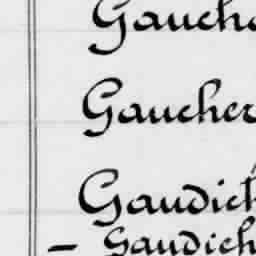 Gauche
Gaucher
Gaudich
– Gaudich